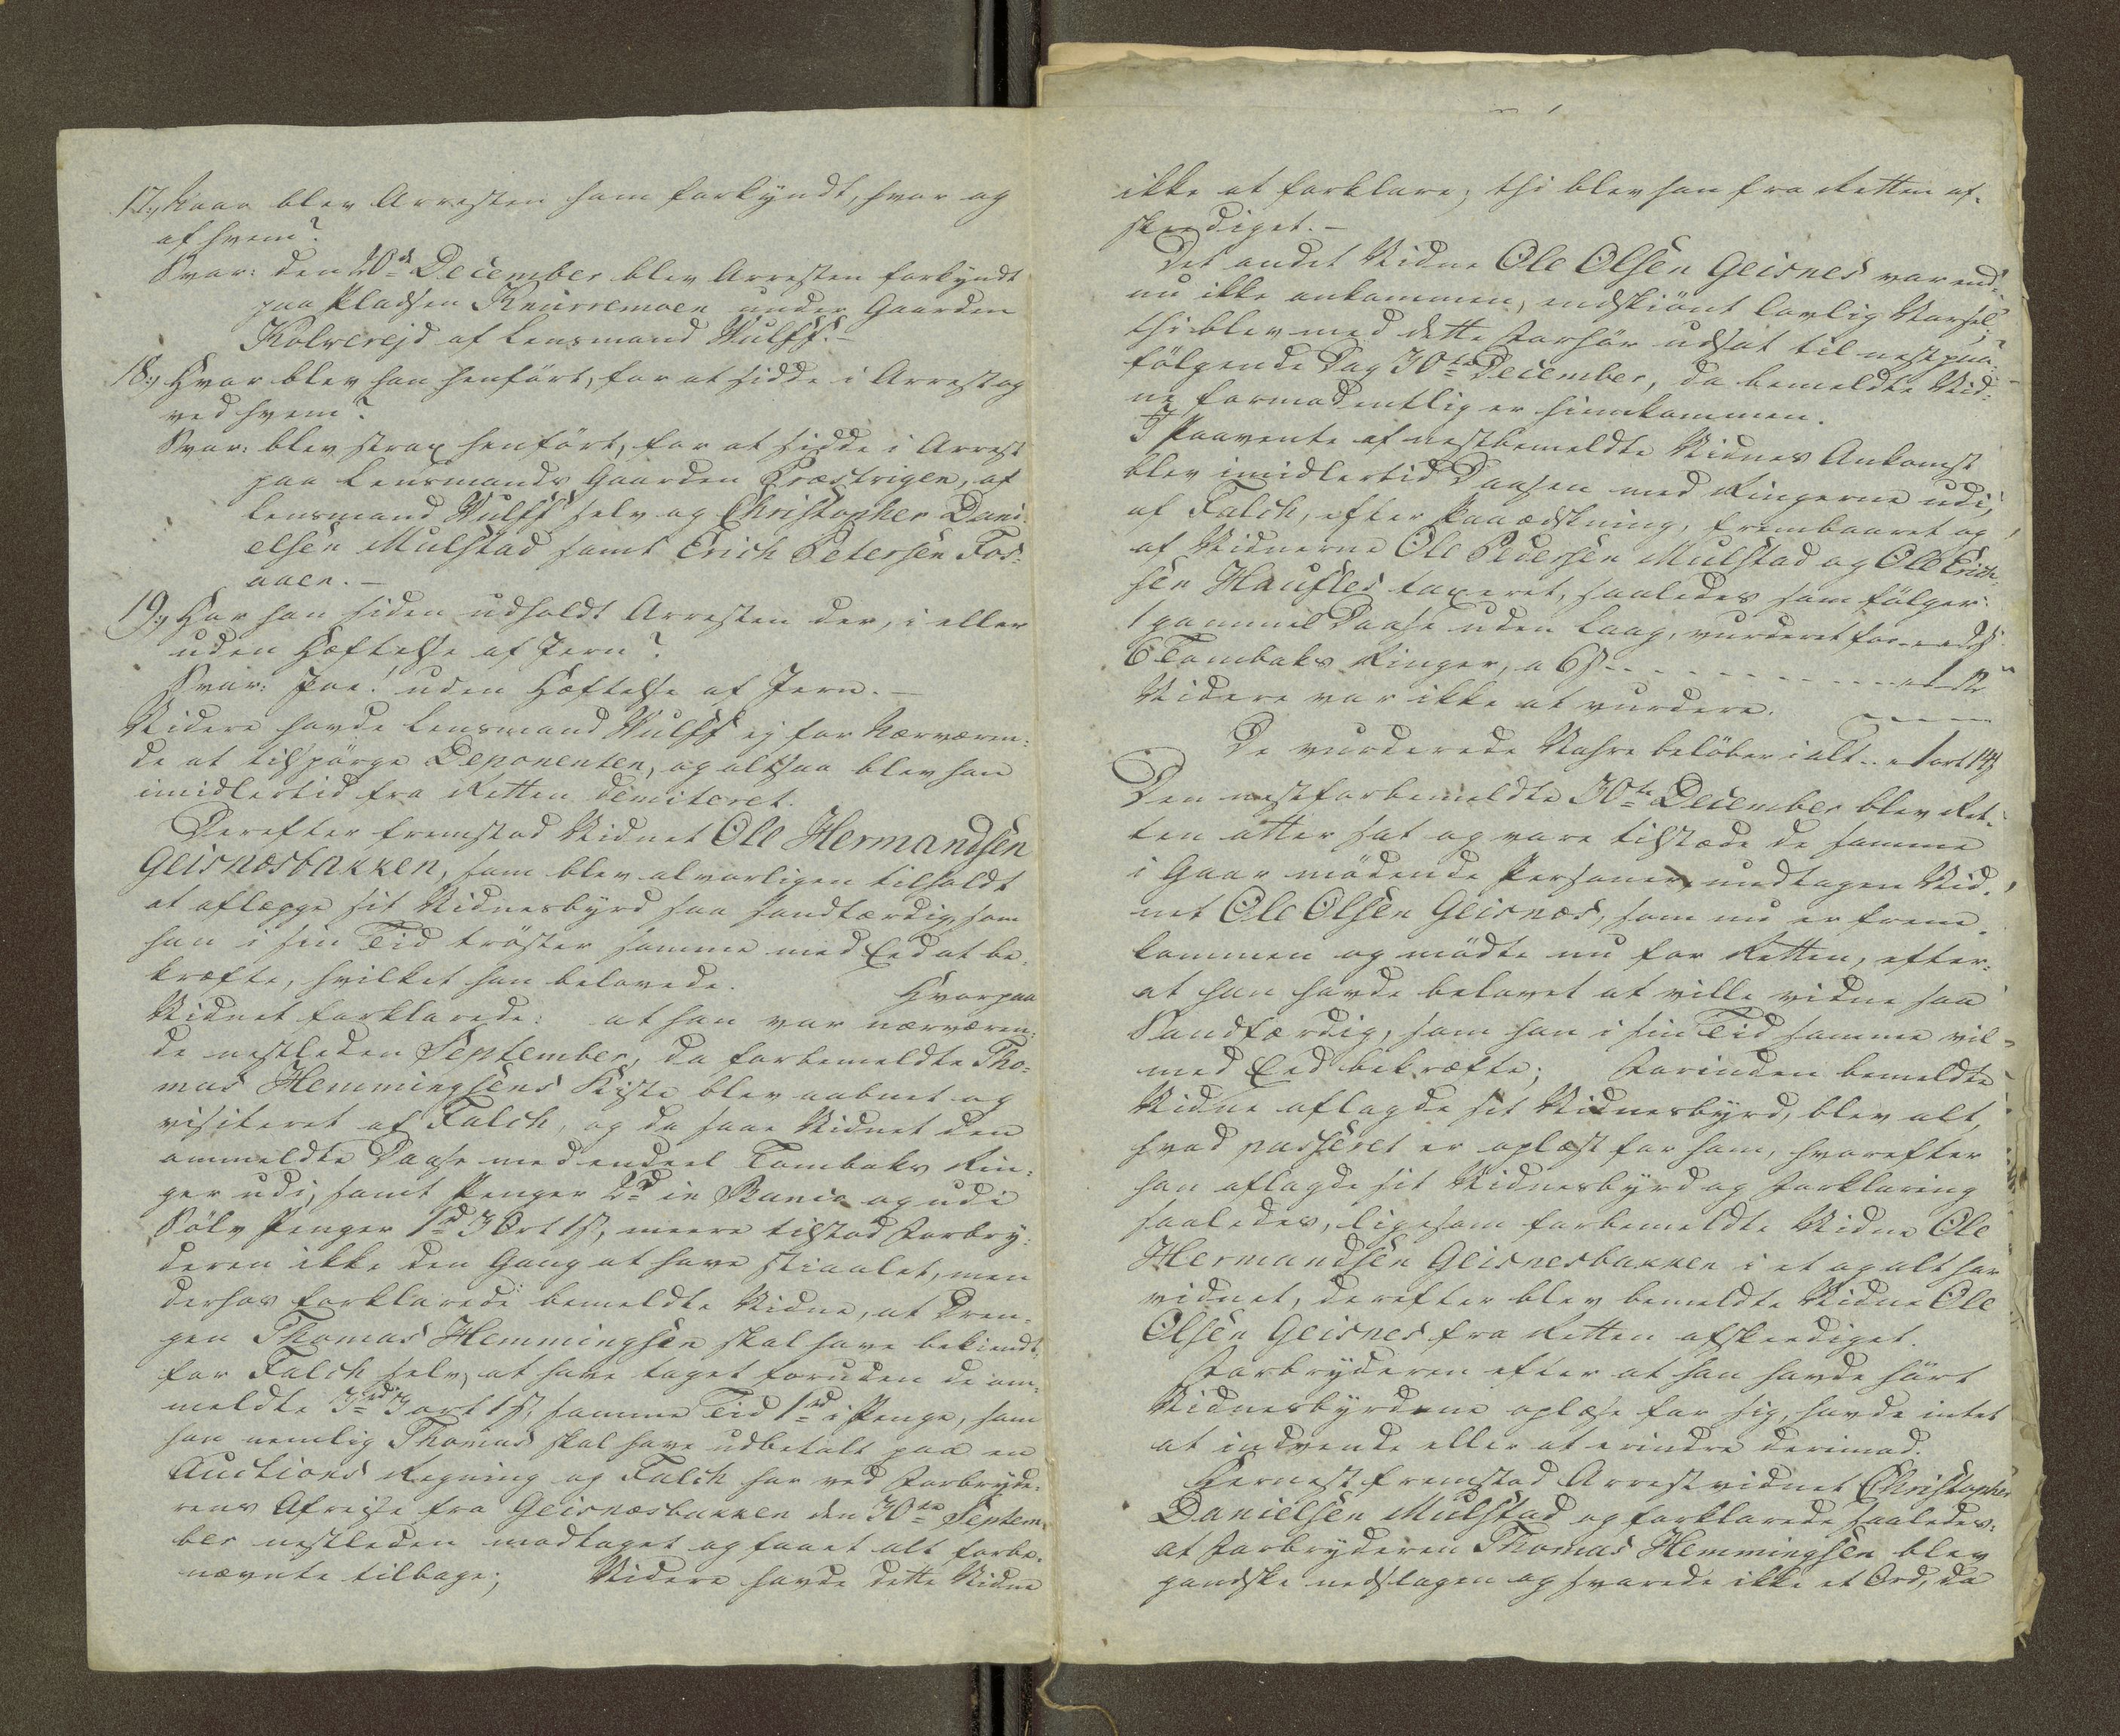 17, Naar blev Arresten ham forkyndt, hvor og
af hvem?
Svar: den 20de December blev Arresten forkyndt
paa Pladsen Knurremoen under Gaarden
Kolverejd af Lensmand Wulff.-
18, Hvor blev han henført, for at sidde i Arrest og
ved hvem?
Svar: blev strax henført, for at sidde i Arrest
paa Lensmands Gaarden Præstvigen, af
Lensmand Wulff selv og Christopher Dani-
elsen Mulstad samt Erich Petersen Fos-
aaen.-
19, Har han siden udholdt Arresten der, i eller
uden Hæftelse af Jern?
Svar: Joe! uden Hæftelse af Jern.-
Videre havde Lensmand Wulff ej for Nærværen-
de at tilspørge Deponenten, og altsaa blev han
imidlertid fra Retten demiteret.
Derefter fremstod Vidnet Ole Hermandsen
Geisnæsbakken, som blev alvorligen tilholdt
at aflægge sit Vidnesbyrd saa sandfærdig, som
han i sin Tid trøster samme med Eed at be-
kræfte, hvilket han belovede. Hvorpaa
Vidnet forklarede: at han var nærværen-
de nestleden September, da forbemeldte Tho-
mas Hemmingsens Kiste blev aabnet og
visiteret af Falch, og da saae Vidnet den
ommeldte Daase med endeel Tombaks Rin-
ger udi, samt Penger 2rd in Banco og udi
Sølv Penger 1rd 3 Ort 1s, meere tilstod Forbry-
deren ikke den Gang at have stiaalet, men
derhos forklarede bemeldte Vidne, at Dren-
gen Thomas Hemmingsen skal have bekiendt,
for Falch selv, at have taget foruden de om-
meldte 3rd 3 ort 1s, samme Tid 1rd i Penge, som
han nemlig Thomas skal have udbetalt paa en
Auctions Regning og Falch har ved Forbryde-
rens Afreise fra Geisnæsbakken den 30te Septem-
ber nestleden modtaget og faaet alt forbe-
nævnte tilbage; Videre havde dette Vidne
ikke at forklare; thi blev han fra Retten af-
skeediget.-
Det andet Vidne Ole Olsen Geisnes var end-
nu ikke ankommen, endskiønt lovlig Varsel,
thi blev med dette Forhør udsat til nestpaa-
følgende Dag 30te December, da bemeldte Vid-
ne formodentlig er hinnkommen.
I Paavente af nestbemeldte Vidnes Ankomst
blev imidlertid Daasen med Ringerne udi,
af Falch, efter Paaædskning, frembaaret og
af Vidnerne Ole Pedersen Mulstad og Ole Erich-
sen Haufles taxeret, saaledes som følger:
1 gammel Daase uden Laag, vurderet for - - 2s
6 Tombaks Ringer, a 6s - - - - - - - - - - 1 - 12 "
Videre var ikke at vurdere.
De vurderede Vahre beløber i alt - - 1 ort 14s
Den nestforbemeldte 30te December blev Ret-
ten atter sat og vare tilstæde de samme
i Gaar mødende Personer, undtagen Vid-
net Ole Olsen Geisnæs, som nu er frem-
kommen og mødte nu for Retten, efter-
at han havde belovet at ville vidne saa
Sandfærdig, som han i sin Tid samme vil
med Eed bekræfte; Forinden bemeldte
Vidne aflagde sit Vidnesbyrd, blev alt,
hvad passeret er oplæst for ham, hvorefter
han aflagde sit Vidnesbyrd og Forklaring
saaledes, ligesom forbemeldte Vidne Ole
Hermandsen Geisnesbakken i et og alt har
vidnet, derefter blev bemeldte Vidne Ole
Olsen Geisnes fra Retten afskeediget.
Forbryderen efter at han havde hørt
Vidnesbyrdene oplæse for sig, havde intet
at indvende eller at erindre derimod.
Hernest fremstod Arrestvidnet Christopher
Danielsen Mulstad og forklarede saaledes:
at Forbryderen Thomas Hemmingsen blev
gandske nedslagen og svarede ikke et Ord, da